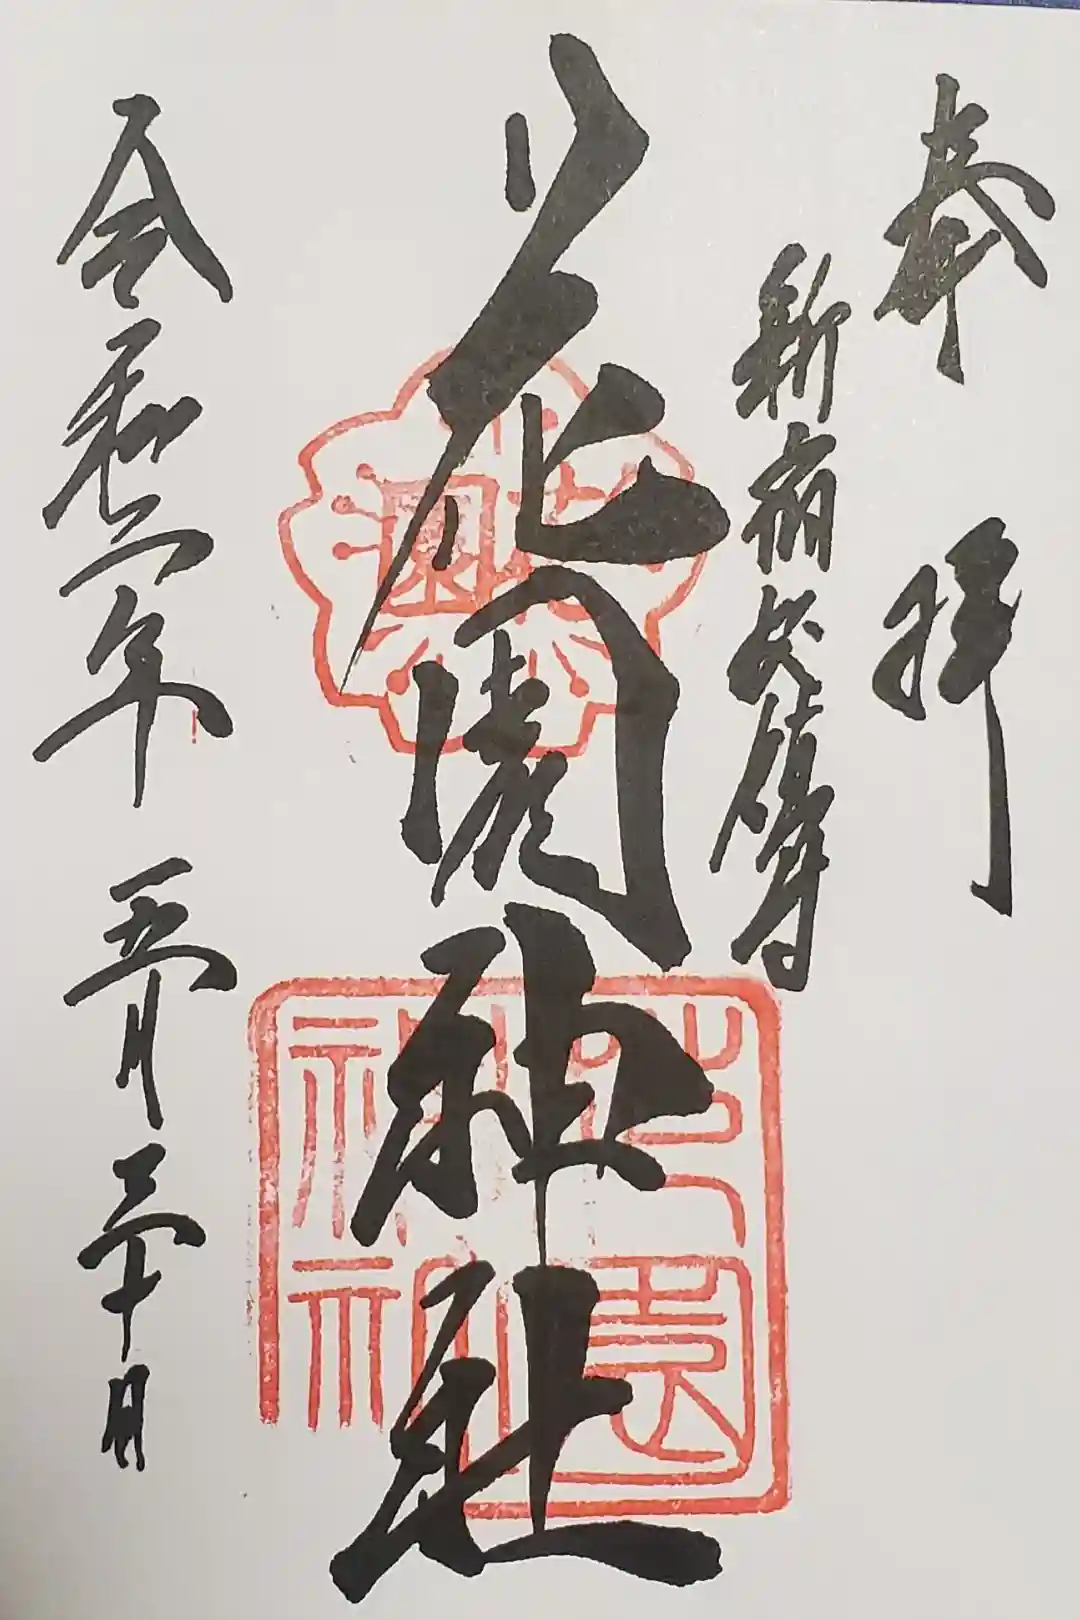 奉拝
新宿総鎮守
花園神社
花園
花園神社
令和二年 五月三十日